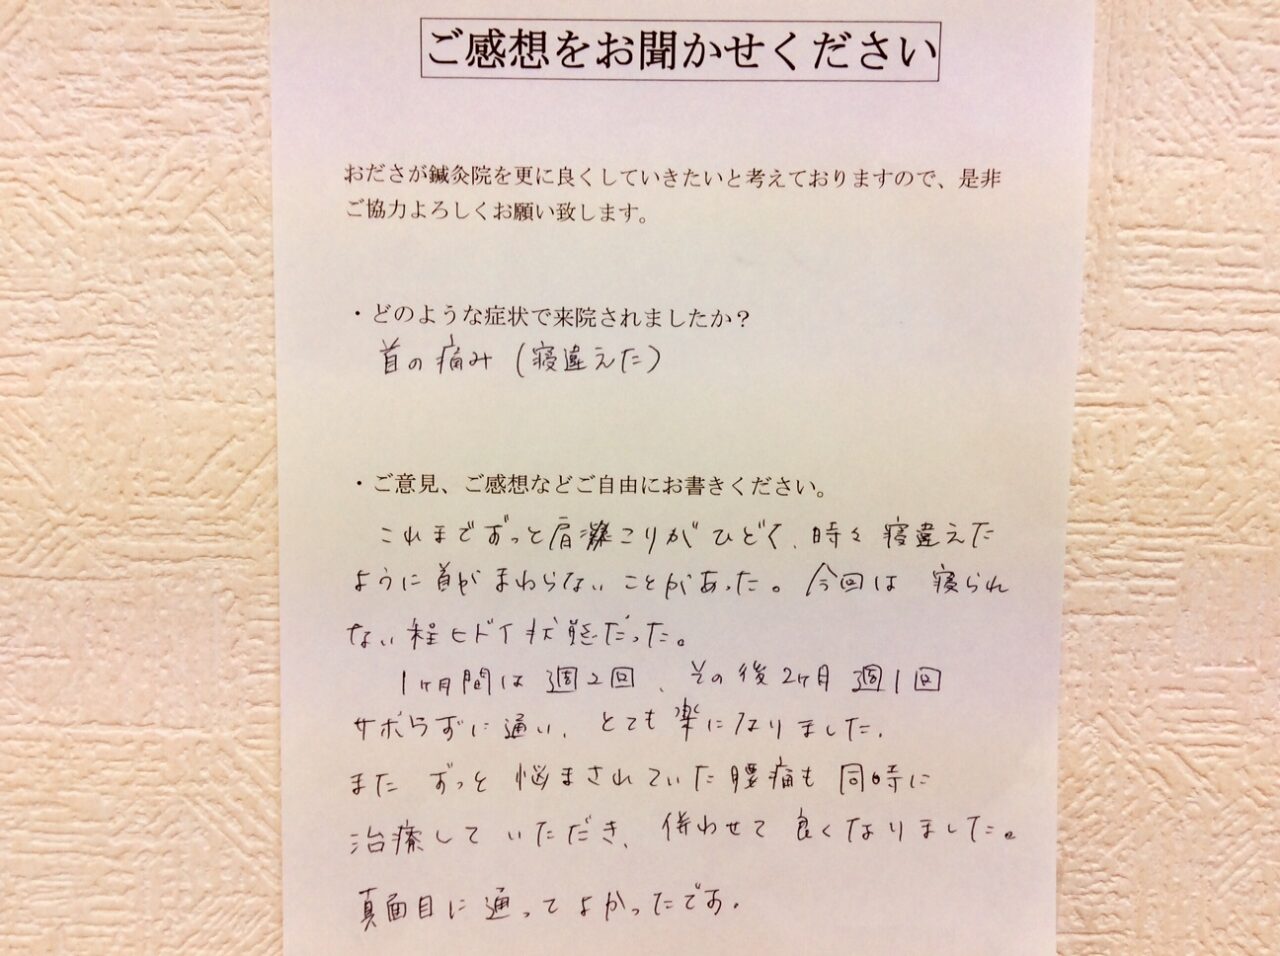 ご感想をお聞かせください
おださが鍼灸院を更に良くしていきたいと考えておりますので、是非
ご協力よろしくお願い致します。
・どのような症状で来院されましたか？
首の痛み（寝違えた）
・ご意見、ご感想などご自由にお書きください。
これまでずっと肩こりがひどく、時々寝違えた
ように首がまわらないことがあった。今回は寝られ
ない程ヒドイ状態だった。
1ヶ月間は週2回、その後2ヶ月週1回
サボらずに通い、とても楽になりました。
またずっと悩まされていた腰痛も同時に
治療していただき、併わせて良くなりました。
真面目に通ってよかったです。